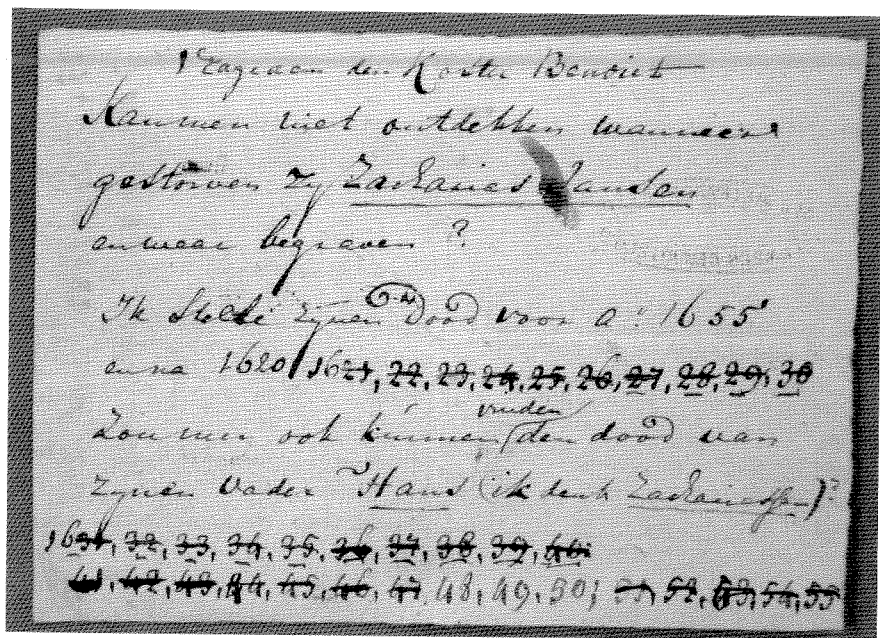 Vragen aan den Koster Benoist
Kan men niet ontdekken wanneer
gestorven zy Zacharias Jansen
en waar begraven ?
Ik stelde zynen dood voor a: 1655
en na 1620 1621, 22, 23, 24, 25, 26, 27, 28, 29, 30
vinden
Zou men ook kunnen den dood van
zynen Vader Hans (ik denk )?
1631, 32, 33, 34, 35, 36, 37, 38, 39, 40
41, 42, 43, 44, 45, 46, 47, 48, 49, 50, 51, 52, 53, 54, 55